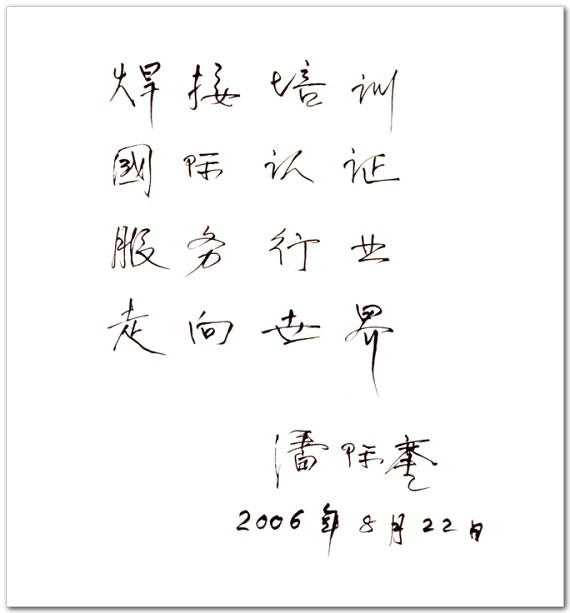 焊接培训
國际认证
服务行业
走向世界
潘际銮
2006年8月22日